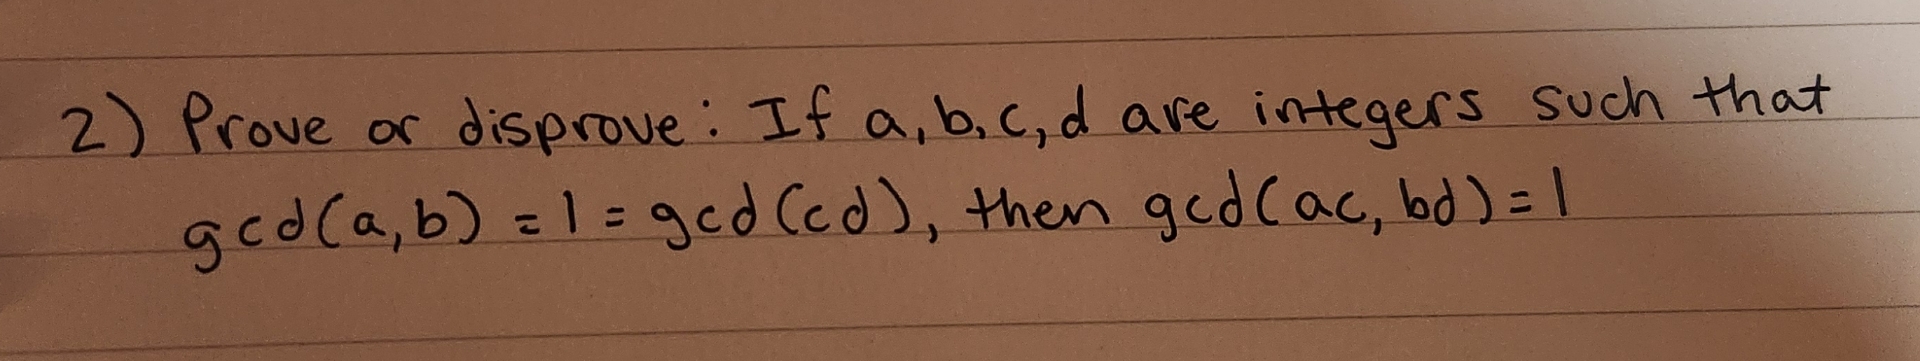 2) Prove or disprove: If a, b, c, d are integers such that
gcd(a,b) = 1 = gcd(cd), then gcd(ac, bd) = 1